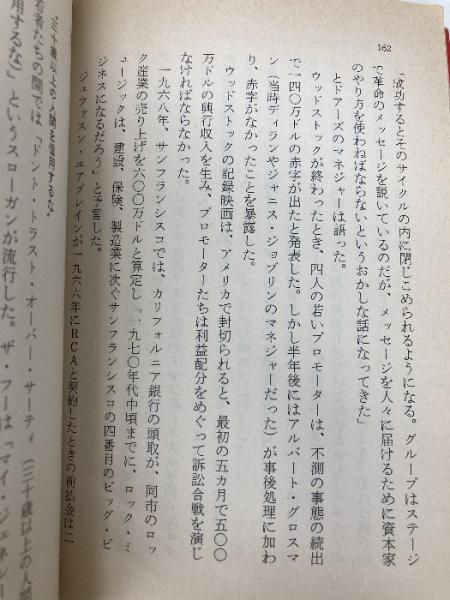 162
「成功するとそのサイクルの内に閉じこめられるようになる。グループはステージ
で革命のメッセージを説いているのだが、メッセージを人々に届けるために資本家
のやり方を使わねばならないというおかしな話になってきた」
とドアーズのマネジャーは語った。
ウッドストックが終わったとき、四人の若いプロモーターは、不測の事態の続出
で一四〇万ドルの赤字が出たと発表した。しかし半年後にはアルバート・グロスマ
ン（当時ディランやジャニス・ジョプリンのマネジャーだった）が事後処理に加わ
り、赤字がなかったことを暴露した。
ウッドストックの記録映画は、アメリカで封切られると、最初の五カ月で五〇〇
万ドルの興行収入を生み、プロモーターたちは利益配分をめぐって訴訟合戦を演じ
なければならなかった。
一九六八年、サンフランシスコでは、カリフォルニア銀行の頭取が、同市のロッ
ク産業の売り上げを六〇〇万ドルと算定し「一九七〇年代中頃までに、ロック・ミ
ュージックは、建設、保険、製造業に次ぐサンフランシスコの四番目のビッグ・ビ
ジネスになるだろう」と予言した。
ジェファスン・エアプレインが一九六六年にRCAと契約したときの前払金は二
"三十歳以上の人間を信用するな"
若者たちの間では、「ドント・トラスト・オーバー・サーティ（三十歳以上の人間
用するな）」というスローガンが流行した。ザ・フーは「マイ・ジェネレー